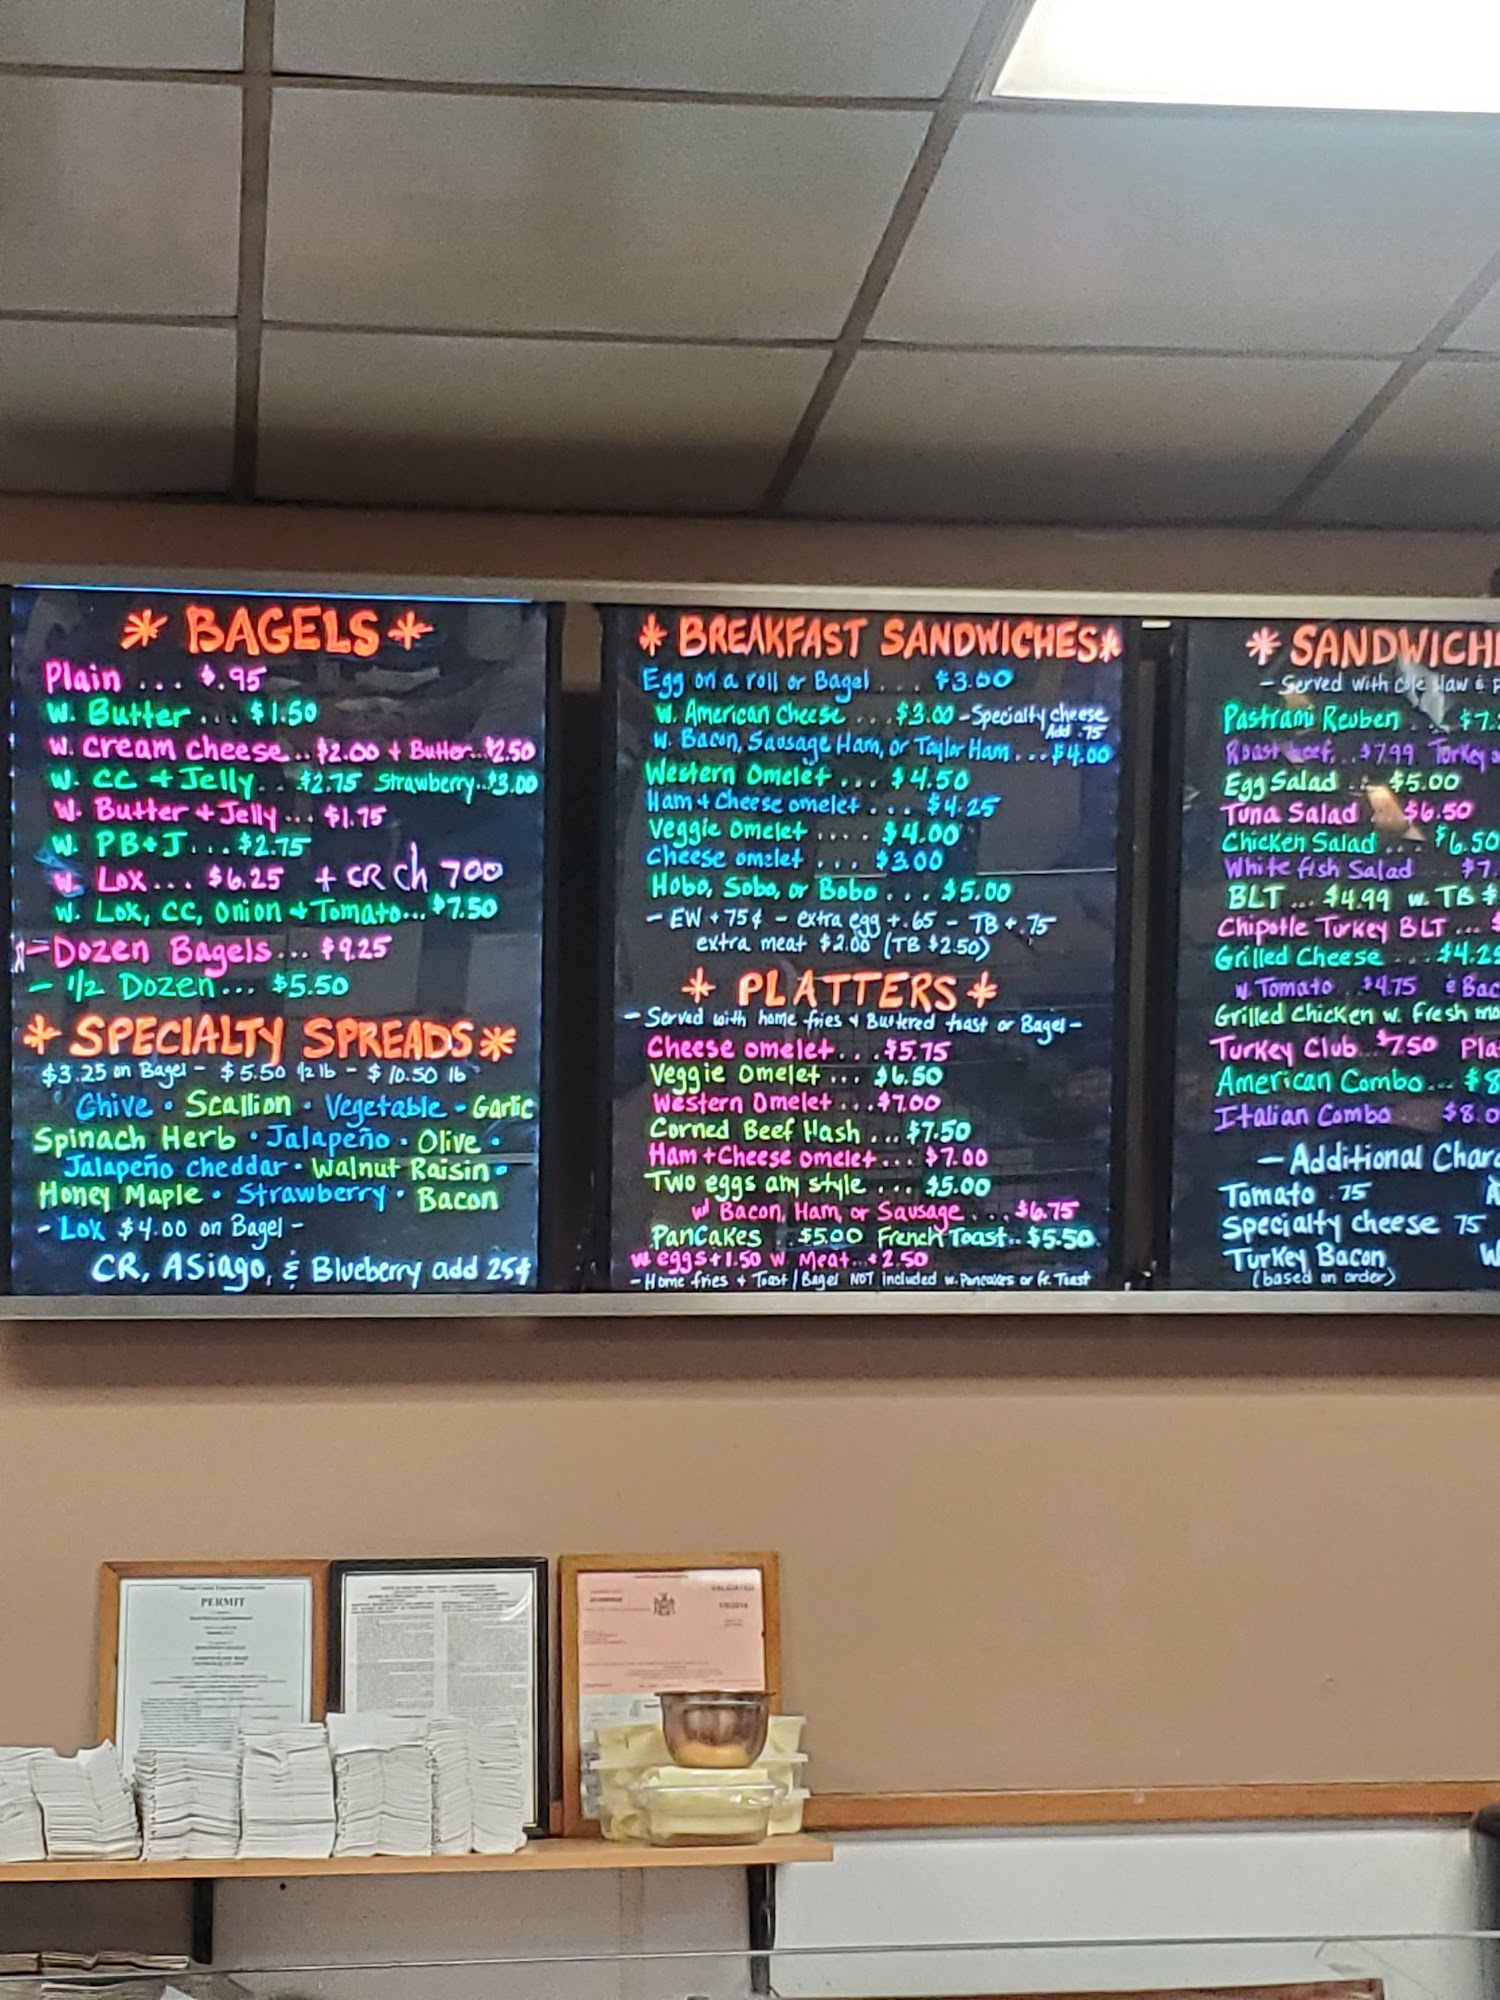 * BAGELS *
Plain ... $.95
w. Butter ... $1.50
w. Cream cheese ... $2.00 + Butter... $2.50
w. CC + Jelly ... $2.75 Strawberry... $3.00
w. Butter + Jelly ... $1.75
w. PB+J ... $2.75
w. Lox ... $6.25 + CR Ch 700
w. Lox, CC, Onion + Tomato... $7.50
- Dozen Bagels ... $9.25
- 1/2 Dozen ... $5.50
* SPECIALTY SPREADS *
$3.25 on Bagel - $5.50 1/2 lb - $10.50 lb
Chive • Scallion • Vegetable • Garlic
Spinach Herb • Jalapeño • Olive •
Jalapeño cheddar • Walnut Raisin •
Honey Maple • Strawberry • Bacon
- Lox $4.00 on Bagel -
CR, Asiago, & Blueberry add 25¢
* BREAKFAST SANDWICHES *
Egg on a roll or Bagel ... $3.00
w. American Cheese ... $3.00 - Specialty cheese
Add .75
w. Bacon, Sausage Ham, or Taylor Ham ... $4.00
Western Omelet ... $4.50
Ham + Cheese omelet ... $4.25
Veggie Omelet .... $4.00
Cheese omelet ... $3.00
Hobo, Sobo, or Bobo ... $5.00
- EW + 75¢ - extra egg + .65 - TB + .75
extra meat $2.00 (TB $2.50)
* PLATTERS *
- Served with home fries & Buttered toast or Bagel -
Cheese omelet ... $5.75
Veggie Omelet ... $6.50
Western Omelet ... $7.00
Corned Beef Hash ... $7.50
Ham + Cheese omelet ... $7.00
Two eggs any style ... $5.00
w/ Bacon, Ham, or Sausage ... $6.75
Pancakes $5.00 French Toast.. $5.50
w eggs + 1.50 w. Meat .. 2.50
- Home fries + Toast / Bagel NOT included w. Pancakes or Fr. Toast
* SANDWICH
- Served with Cole slaw &
Pastrami Reuben ... $7.
Roast beef ... $7.99 Turkey
Egg Salad ... $5.00
Tuna Salad $6.50
Chicken Salad ... $6.50
White fish Salad $7.
BLT ... $4.99 w. TB $
Chipotle Turkey BLT ... $
Grilled Cheese ... $4.25
w. Tomato .. $4.75 & Bac
Grilled Chicken w. Fresh mo
Turkey Club.. $7.50 Pla
American Combo... $8
Italian Combo $8.0
- Additional Char
Tomato .75
Specialty cheese 75
Turkey Bacon W
(based on order)
PERMIT
VALIDATED